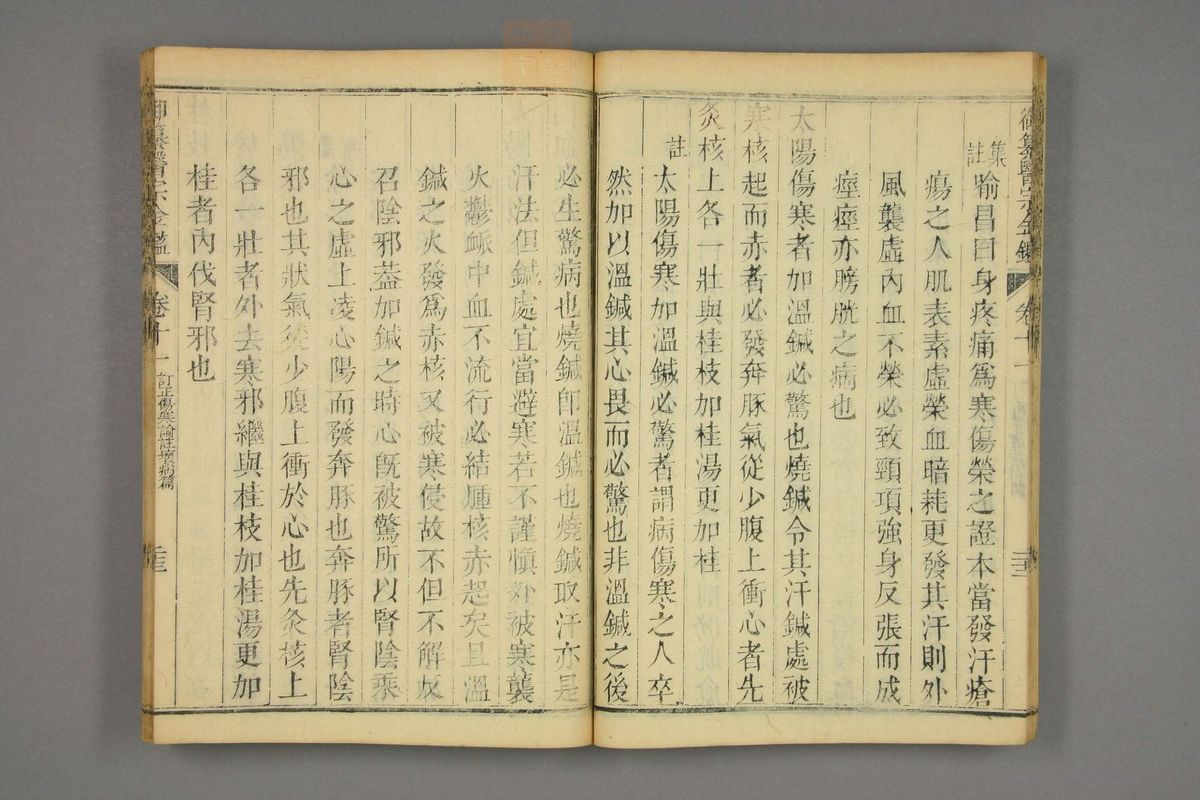 御纂醫宗金鑑 卷十一
集註 喻昌曰身疼痛爲寒傷榮之證本當發汗瘡
瘍之人肌表素虛榮血暗耗更發其汗則外
風襲虛內血不榮必致頸項強身反張而成
痙痙亦膀胱之病也
太陽傷寒者加溫鍼必驚也燒鍼令其汗鍼處被
寒核起而赤者必發奔豚氣從少腹上衝心者先
灸核上各一壯與桂枝加桂湯更加桂
註 太陽傷寒加溫鍼必驚者謂病傷寒之人卒
然加以溫鍼其心畏而必驚也非溫鍼之後
必生驚病也燒鍼即溫鍼也燒鍼取汗亦是
汗法但鍼處宜當避寒若不謹慎外被寒襲
火鬱衇中血不流行必結腫核赤起矣且溫
鍼之火發爲赤核又被寒侵故不但不解反
召陰邪葢加鍼之時心旣被驚所以腎陰乘
心之虛上凌心陽而發奔豚也奔豚者腎陰
邪也其狀氣從少腹上衝於心也先灸核上
各一壯者外去寒邪繼與桂枝加桂湯更加
桂者內伐腎邪也
御纂醫宗金鑑 卷十一 訂正傷寒論註壞病篇